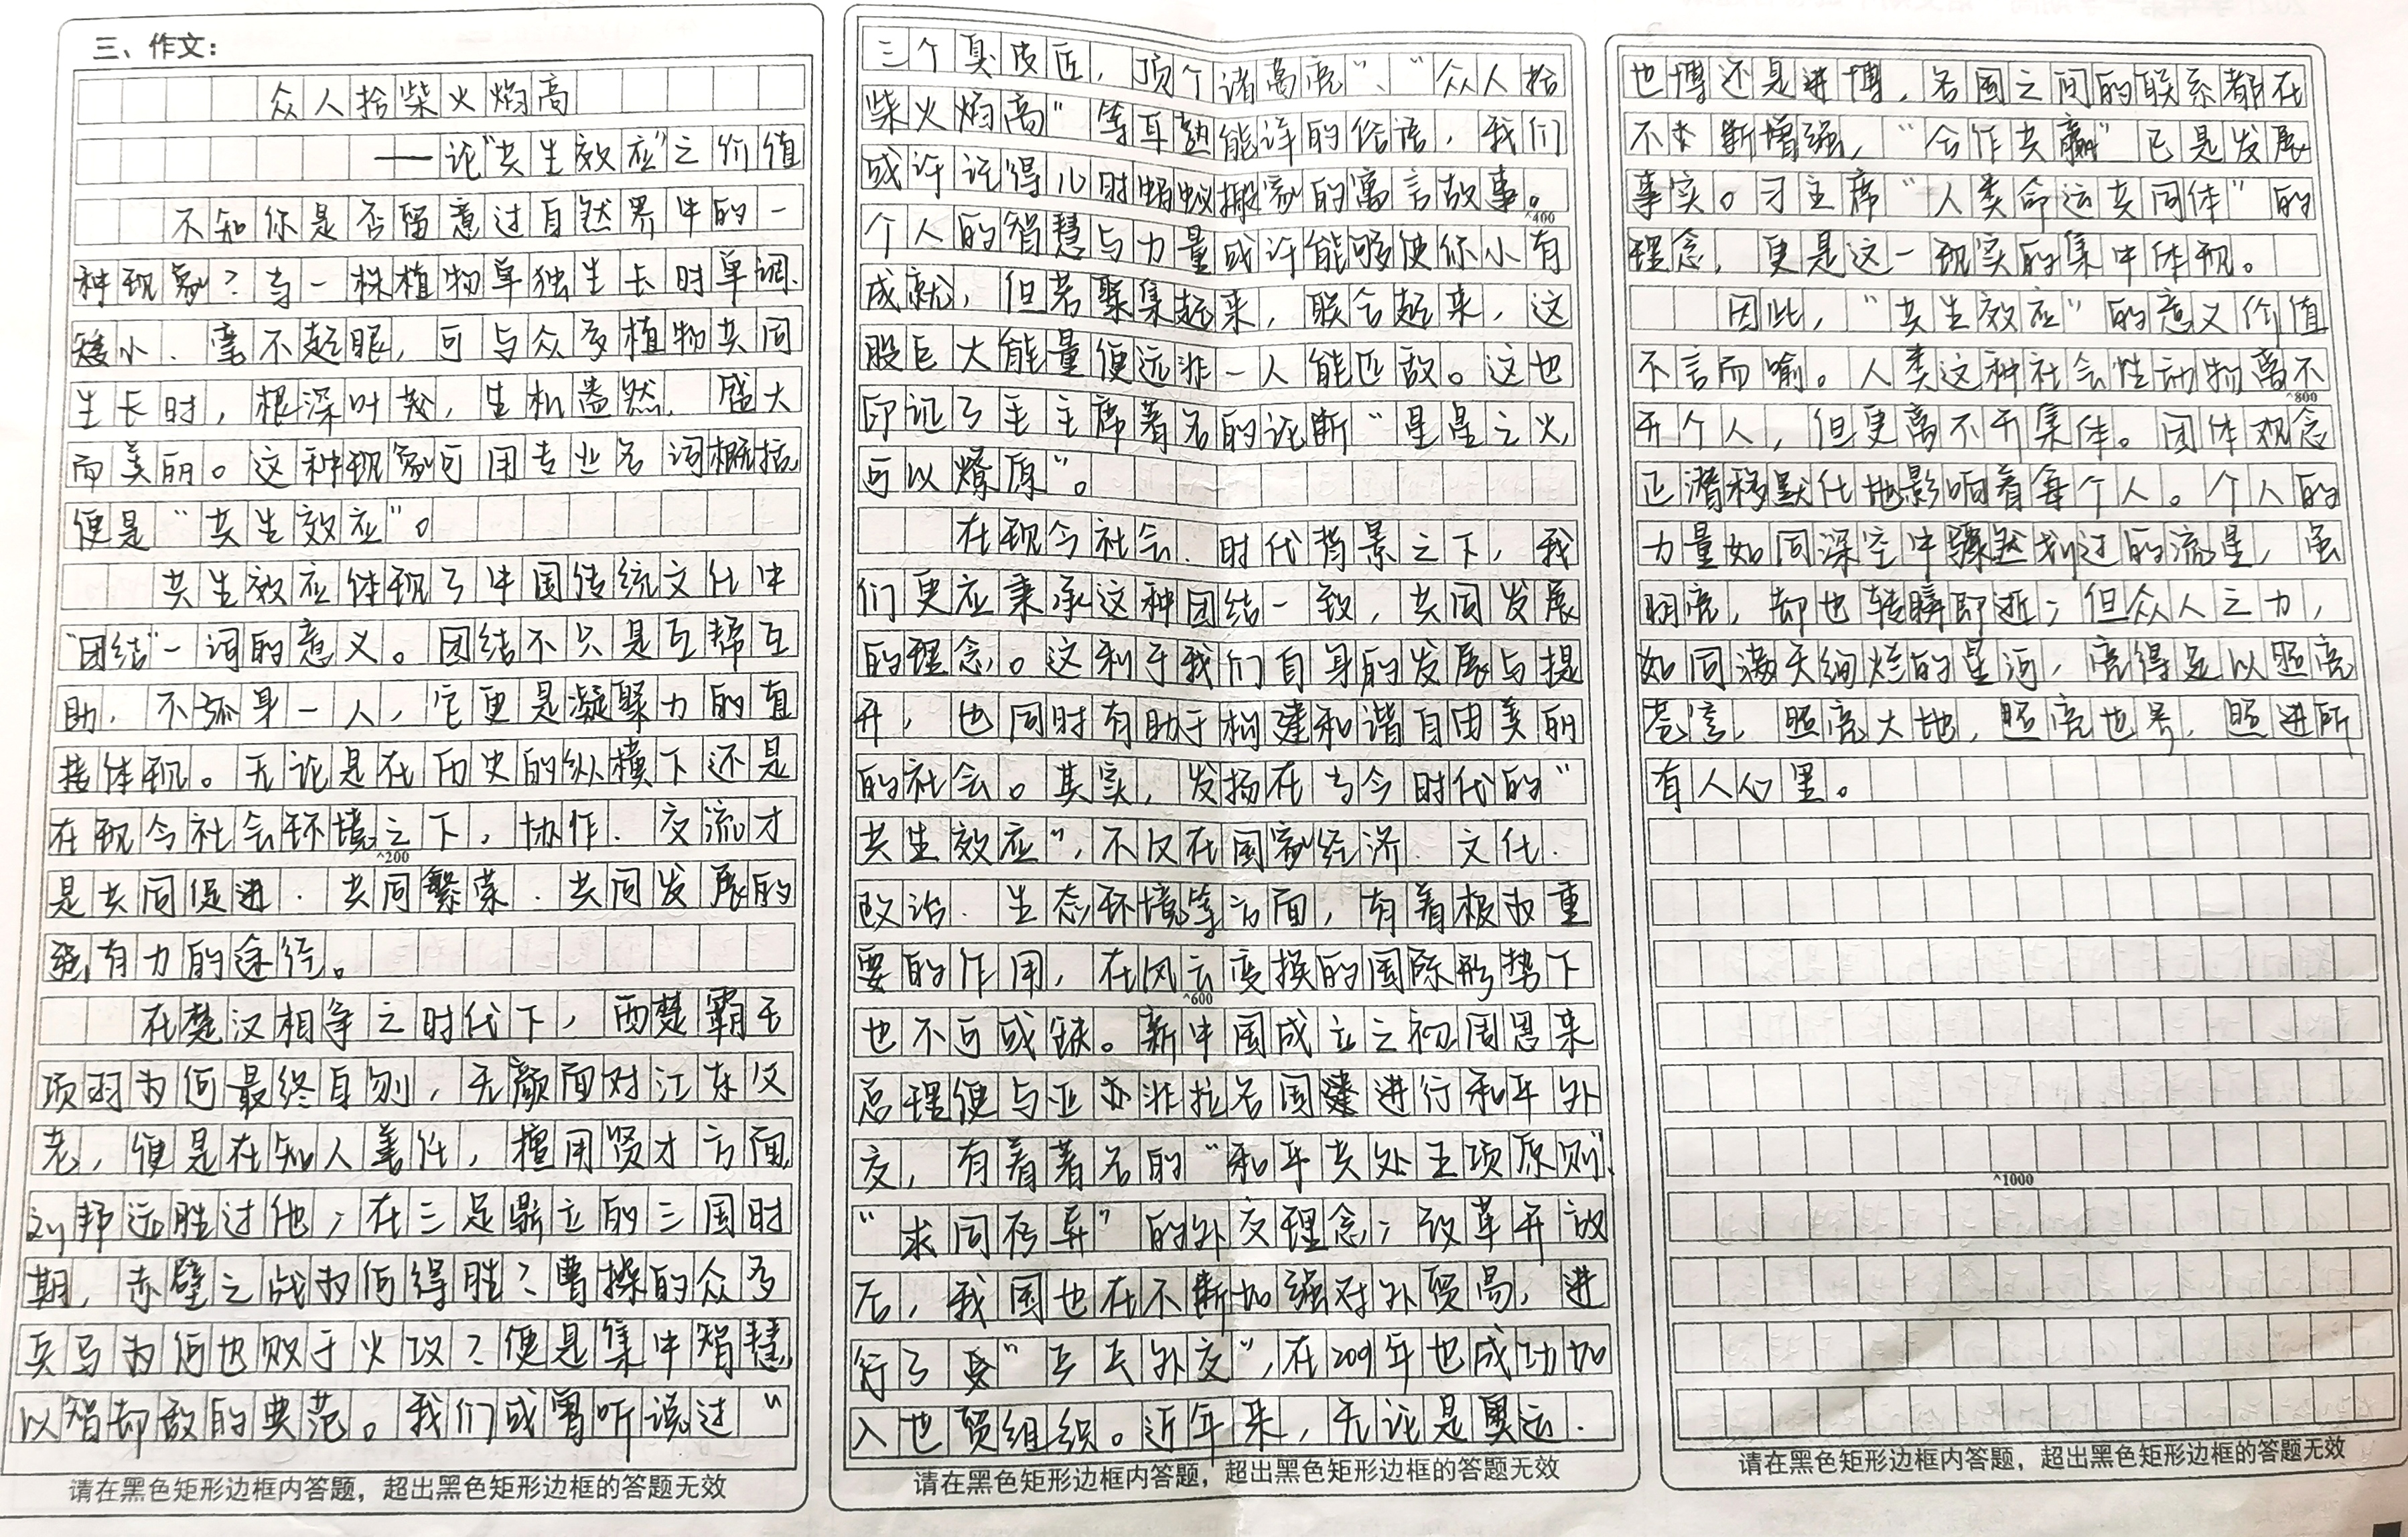 三、作文：
众人拾柴火焰高
——论“共生效应”之价值
不知你是否留意过自然界中的一
种现象？当一株植物单独生长时单调、
矮小、毫不起眼，可与众多植物共同
生长时，根深叶茂，生机盎然，盛大
而美丽。这种现象可用专业名词概括，
便是“共生效应”。
共生效应体现了中国传统文化中
“团结”一词的意义。团结不只是互帮互
助，不孤身一人，它更是凝聚力的直
接体现。无论是在历史的纵横下还是
在现今社会环境之下，协作、交流才
^200
是共同促进、共同繁荣、共同发展的
强有力的途径。
在楚汉相争之时代下，西楚霸王
项羽为何最终自刎，无颜面对江东父
老，便是在知人善任，擅用贤才方面，
刘邦远胜过他；在三足鼎立的三国时
期，赤壁之战为何得胜？曹操的众多
兵马为何也败于火攻？便是集中智慧，
以智却敌的典范。我们或曾听说过“
请在黑色矩形边框内答题，超出黑色矩形边框的答题无效
三个臭皮匠，顶个诸葛亮”、“众人拾
柴火焰高”等耳熟能详的俗语，我们
或许记得儿时蚂蚁搬家的寓言故事。
^400
个人的智慧与力量或许能够使你小有
成就，但若聚集起来，联合起来，这
股巨大能量便远非一人能匹敌。这也
印证了毛主席著名的论断“星星之火，
可以燎原”。
在现今社会、时代背景之下，我
们更应秉承这种团结一致，共同发展
的理念。这利于我们自身的发展与提
升，也同时有助于构建和谐自由美丽
的社会。其实，发扬在当今时代的“
共生效应”，不仅在国家经济、文化、
政治、生态环境等方面，有着极为重
要的作用，在风云变换的国际形势下
^600
也不可或缺。新中国成立之初周恩来
总理便与亚非拉各国进行和平外
交，有着著名的“和平共处五项原则”、
“求同存异”的外交理念；改革开放
后，我国也在不断加强对外贸易，进
行了“乒乓外交”，在2001年也成功加
入世贸组织。近年来，无论是奥运、
请在黑色矩形边框内答题，超出黑色矩形边框的答题无效
世博还是进博，各国之间的联系都在
不断增强，“合作共赢”已是发展
事实。习主席“人类命运共同体”的
理念，更是这一现实的集中体现。
因此，“共生效应”的意义价值
不言而喻。人类这种社会性动物离不
^800
开个人，但更离不开集体。团体观念
正潜移默化地影响着每个人。个人的
力量如同深空中骤然划过的流星，虽
明亮，却也转瞬即逝；但众人之力，
如同满天绚烂的星河，亮得足以照亮
苍穹，照亮大地，照亮世界，照进所
有人心里。
^1000
请在黑色矩形边框内答题，超出黑色矩形边框的答题无效